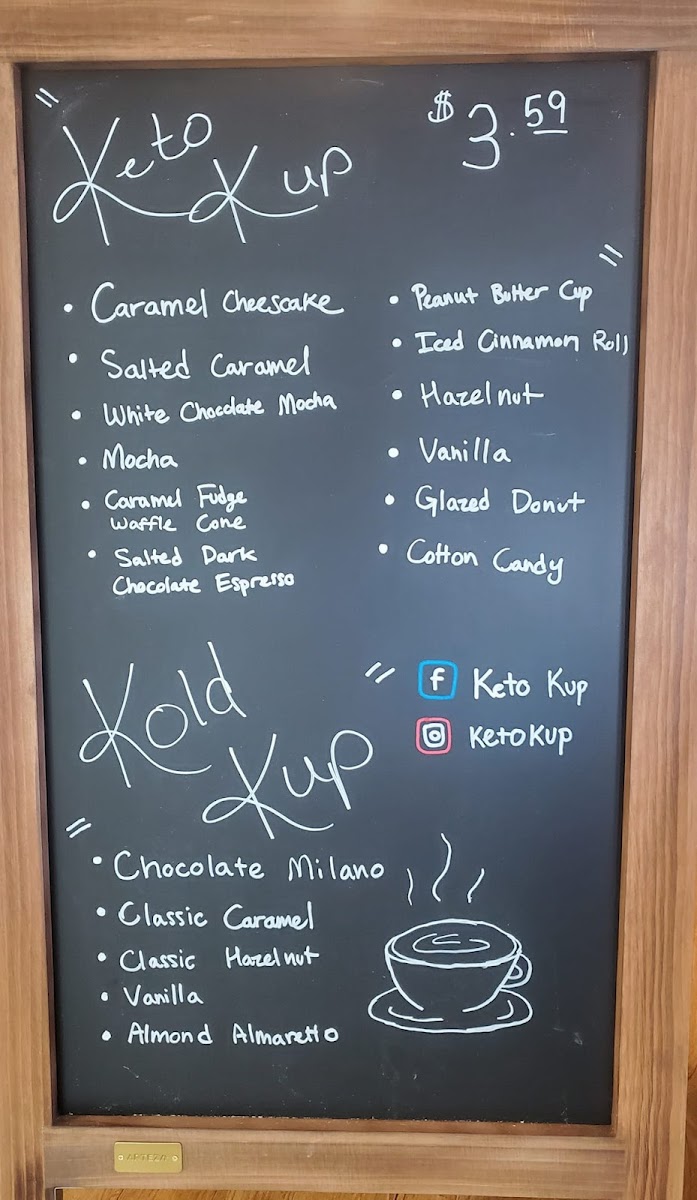 "Keto Kup"
$3.59
• Caramel Cheescake
• Salted Caramel
• White Chocolate Mocha
• Mocha
• Caramel Fudge
Waffle Cone
• Salted Dark
Chocolate Espresso
• Peanut Butter Cup
• Iced Cinnamon Roll
• Hazelnut
• Vanilla
• Glazed Donut
• Cotton Candy
"Kold
Kup"
f Keto Kup
KetoKup
• Chocolate Milano
• Classic Caramel
• Classic Hazelnut
• Vanilla
• Almond Almaretto
ARTEZA